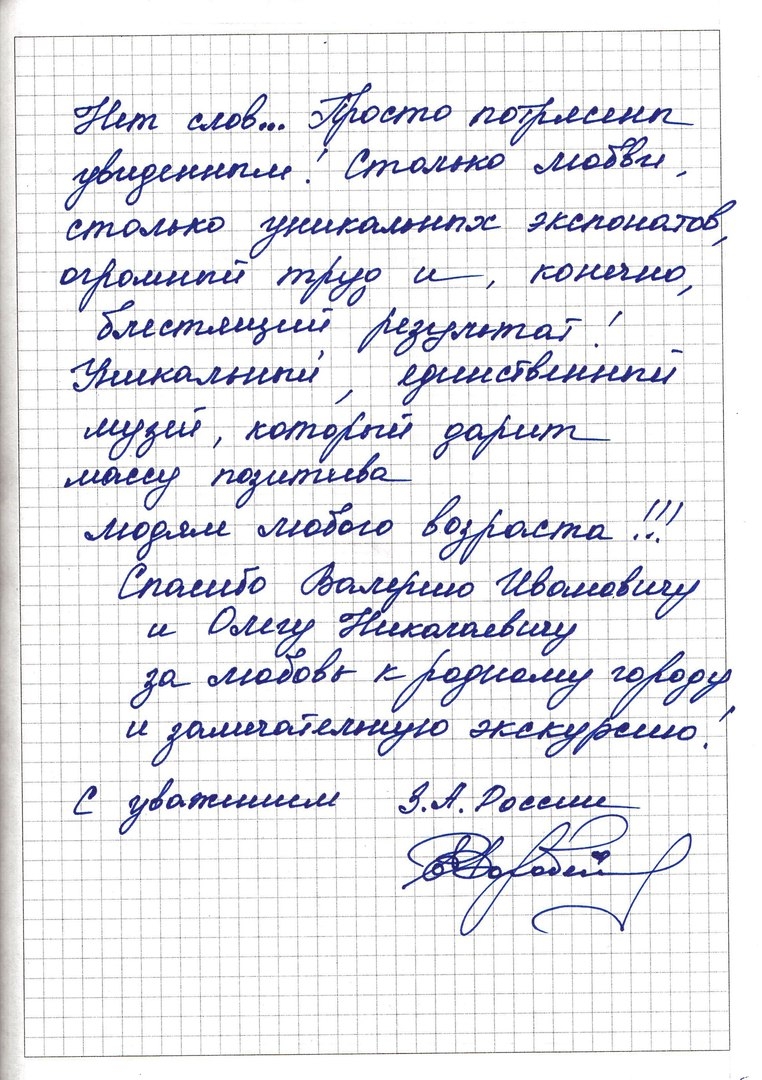 Нет слов... Просто потрясены
увиденным! Столько любви,
столько уникальных экспонатов,
огромный труд и, конечно,
блестящий результат!
Уникальный, единственный
музей, который дарит
массу позитива
людям любого возраста!!!
Спасибо Валерию Ивановичу
и Олегу Николаевичу
за любовь к родному городу
и замечательную экскурсию!
С уважением З.А. России